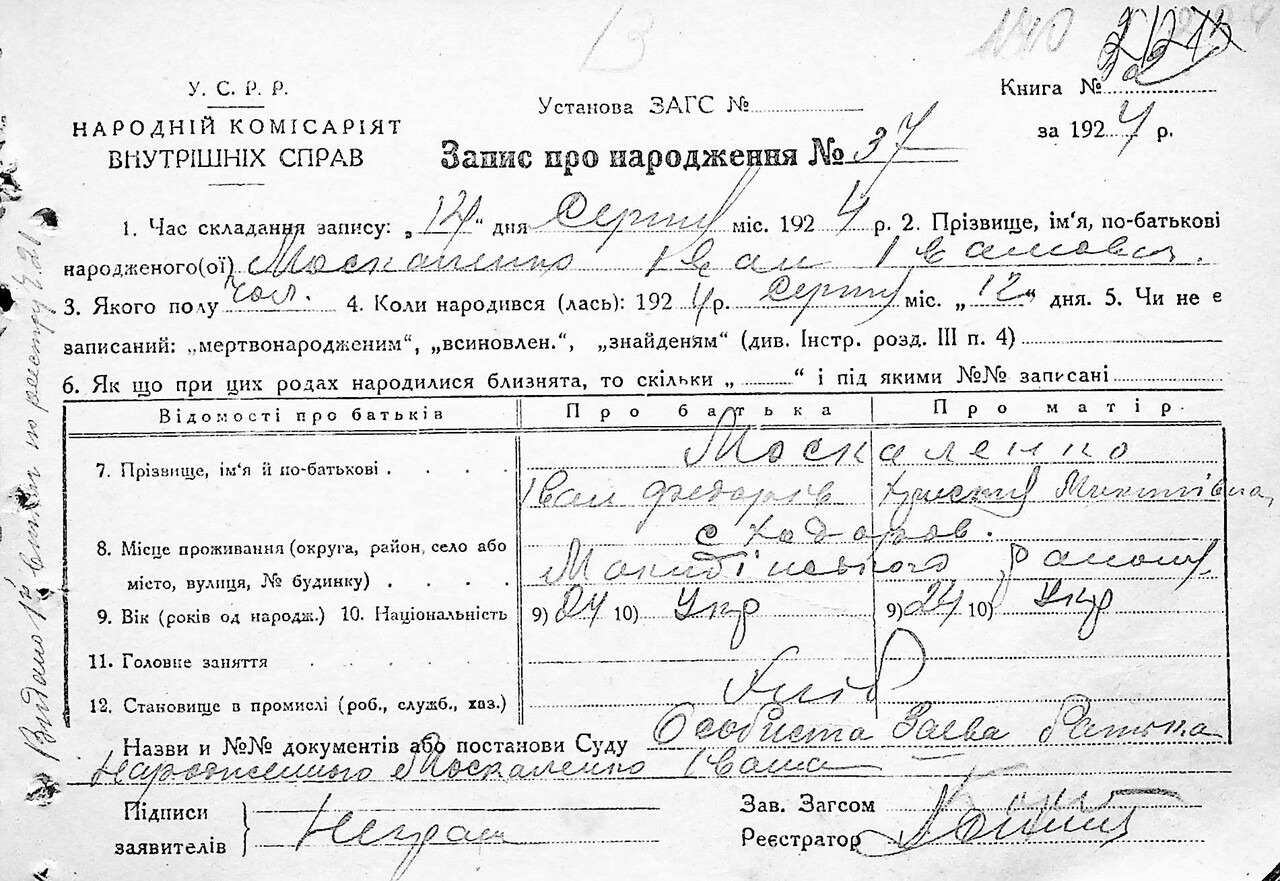 У. С. Р. Р.
НАРОДНІЙ КОМІСАРІЯТ
ВНУТРІШНІХ СПРАВ
Установа ЗАГС №
Запис про народження № 37
Книга №
за 1924 р.
1. Час складання запису: „14“ дня Серпня міс. 1924 р. 2. Прізвище, ім‘я, по-батькові
народженого(ої) Москаленко Іван Іванович.
3. Якого полу чол. 4. Коли народився (лась): 1924 р. Серпня міс. „12“ дня. 5. Чи не є
записаний: „мертвонародженим“, „всиновлен.“, „знайденям“ (див. Інстр. розд. III п. 4)
6. Як що при цих родах народилися близнята, то скільки „ “ і під якими №№ записані
Відомості про батьків Про батька Про матір.
Москаленко
7. Прізвище, ім‘я й по-батькові
Іван Христя Микитівна,
с.
8. Місце проживання (округа, район, село або
місто, вулиця, № будинку) району
9. Вік (років од народж.) 10. Національність 9) 24 10) Укр 9) 24 10) Укр
11. Головне заняття
Хліб
12. Становище в промислі (роб., служб., хаз.)
Назви и №№ документів або постанови Суду Особиста Заява Батька
Народженного Москаленко Івана
Підписи
заявителів Неграм
Зав. Загсом
Реєстратор
Видано витяг по реєстру № 21